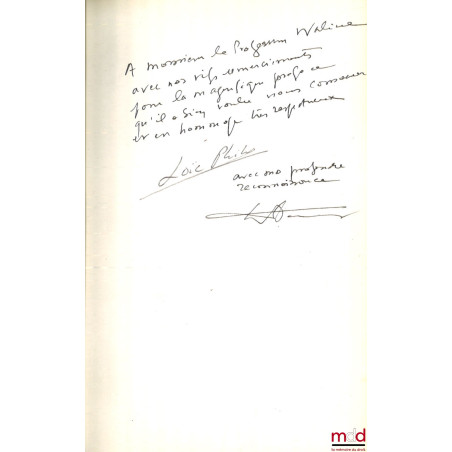 A Monsieur le Professeur Waline
avec nos vifs remerciements
pour la magnifique préface
qu'il a bien voulu nous consacrer
et en hommage très respectueux
Loïc Philip
avec ma profonde
reconnaissance
mdd
la mémoire du droit